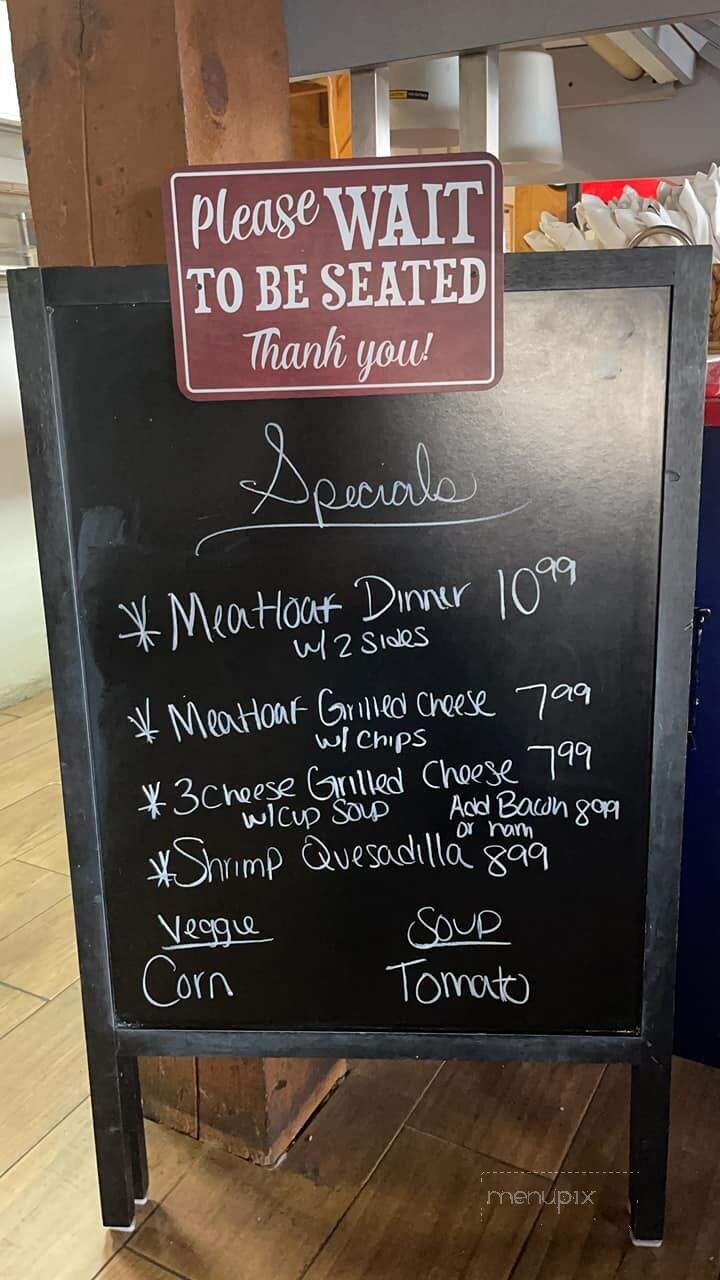 Please WAIT
TO BE SEATED
Thank you!
Specials
* Meatloaf Dinner 10.99
w/ 2 sides
* Meatloaf Grilled Cheese 7.99
w/ chips
* 3 Cheese Grilled Cheese 7.99
w/ Cup Soup Add Bacon 8.99
or ham
* Shrimp Quesadilla 8.99
Veggie Soup
Corn Tomato
menupix